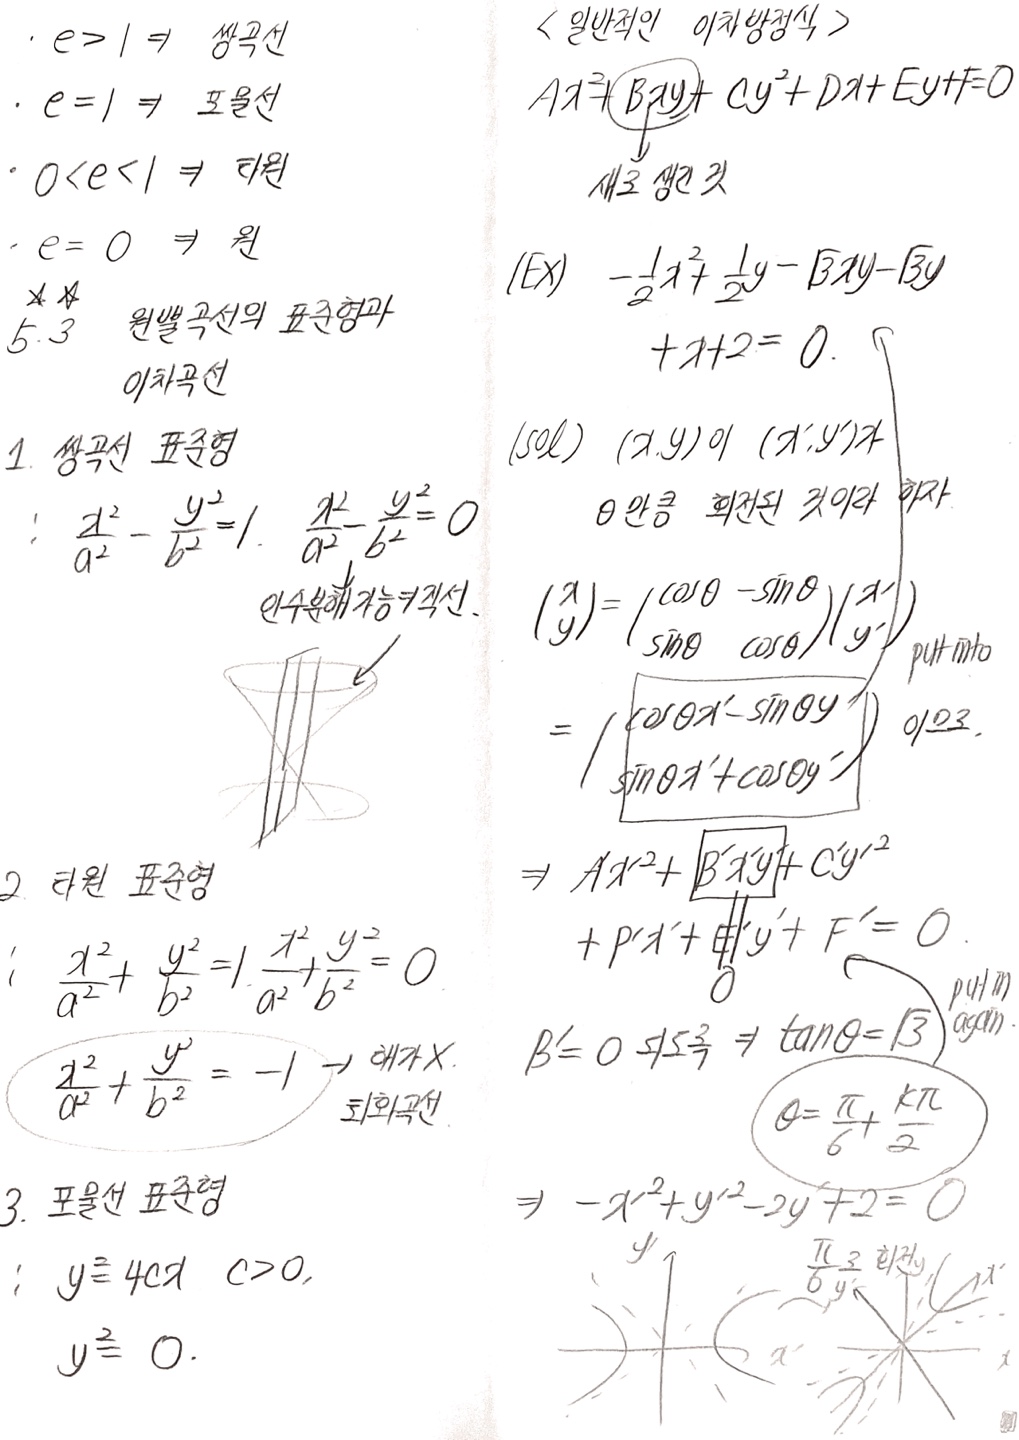 · e > 1 ⇒ 쌍곡선
· e = 1 ⇒ 포물선
· 0 < e < 1 ⇒ 타원
· e = 0 ⇒ 원
☆☆
5.3 원뿔곡선의 표준형과
이차곡선
1. 쌍곡선 표준형
: x²/a² - y²/b² = 1. x²/a² - y²/b² = 0
인수분해가능⇒직선.
2 타원 표준형
: x²/a² + y²/b² = 1. x²/a² + y²/b² = 0
x²/a² + y²/b² = -1 → 해가 X.
퇴화곡선
3. 포물선 표준형
: y² = 4cx c>0,
y² = 0.
<일반적인 이차방정식>
Ax² + Bxy + Cy² + Dx + Ey + F = 0
새로 생긴 것
(Ex) -1/2x² + 1/2y - √3xy - √3y
+ x + 2 = 0.
(sol) (x,y)이 (x′,y′)가
θ만큼 회전된 것이라 하자
(x y) = (cosθ -sinθ sinθ cosθ)(x′ y′)
put into
= (cosθx′ - sinθy′ sinθx′ + cosθy′) 이므로.
⇒ A′x′² + B′x′y′ + C′y′²
+ D′x′ + E′y′ + F′ = 0.
0
put in
again.
B′ = 0 되도록 ⇒ tanθ = √3
θ = π/6 + kπ/2
⇒ -x′² + y′² - 2y′ + 2 = 0
y′ π/6로 회전 y
y′ x′
x′ x